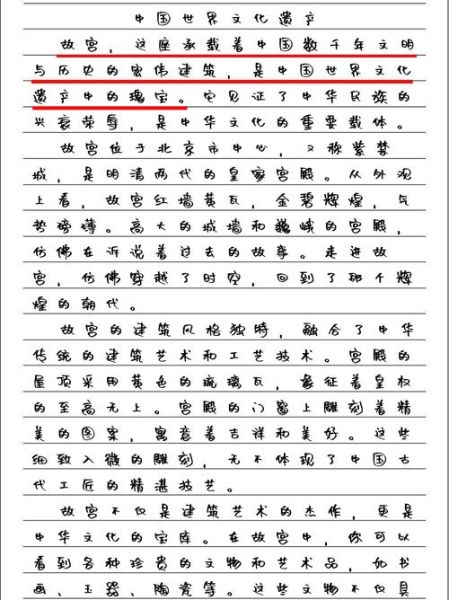 中国世界文化遗产
故宫，这座承载着中国数千年文明
与历史的宏伟建筑，是中国世界文化
遗产中的瑰宝。它见证了中华民族的
兴衰荣辱，是中华文化的重要载体。
故宫位于北京市中心，又称紫禁
城，是明清两代的皇家宫殿。从外观
上看，故宫红墙黄瓦，金碧辉煌，气
势磅礴。高大的城墙和巍峨的宫殿，
仿佛在诉说着过去的故事。走进故
宫，仿佛穿越了时空，回到了那个辉
煌的朝代。
故宫的建筑风格独特，融合了中华
传统的建筑艺术和工艺技术。宫殿的
屋顶采用黄色的琉璃瓦，象征着皇权
的至高无上。宫殿的门窗上雕刻着精
美的图案，寓意着吉祥和美好。这些
细致入微的雕刻，无不体现了中国古
代工匠的精湛技艺。
故宫不仅是建筑艺术的杰作，更是
中华文化的宝库。在故宫中，你可以
看到各种珍贵的文物和艺术品，如书
画、玉器、陶瓷等。这些文物不仅具